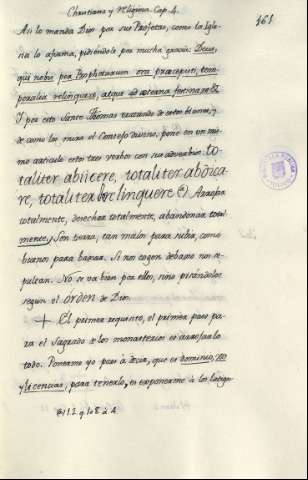 Christiana y Religiosa. Cap. 4.
161
Así lo manda Dios por sus Profetas, como la Iglesia
lo afirma, pidiéndole por mucha gracia: Deus,
qui nobis per Prophetarum ora præcepisti, tem-
poralia relinquere, atque ad æterna festinare &
Y por esto Santo Thomas tratando de estos bienes, y
de como los mira el Consejo divino, pone en un mis
mo articulo estos tres verbos con su adverbio. to-
taliter abiicere, totaliter abdica-
re, totaliter relinquere (*) Arrojar
totalmente, desechar totalmente, abandonar total
mente. Son tierra, tan malos para subir, como
buenos para bajar. Si nos cogen debajo nos se-
pultan. No se va bien por ellos, sino pisándolos
segun el órden de Dios.
+ El primer requisito, el primer paso pa-
ra el Sagrado de los monasterios es arrojarlo
todo. Ponerme yo pues à decir, que es dominio, no
y licencias, para tenerlo, es exponerme à los latigo-
(*) 1. 2. q. 108 à 4.